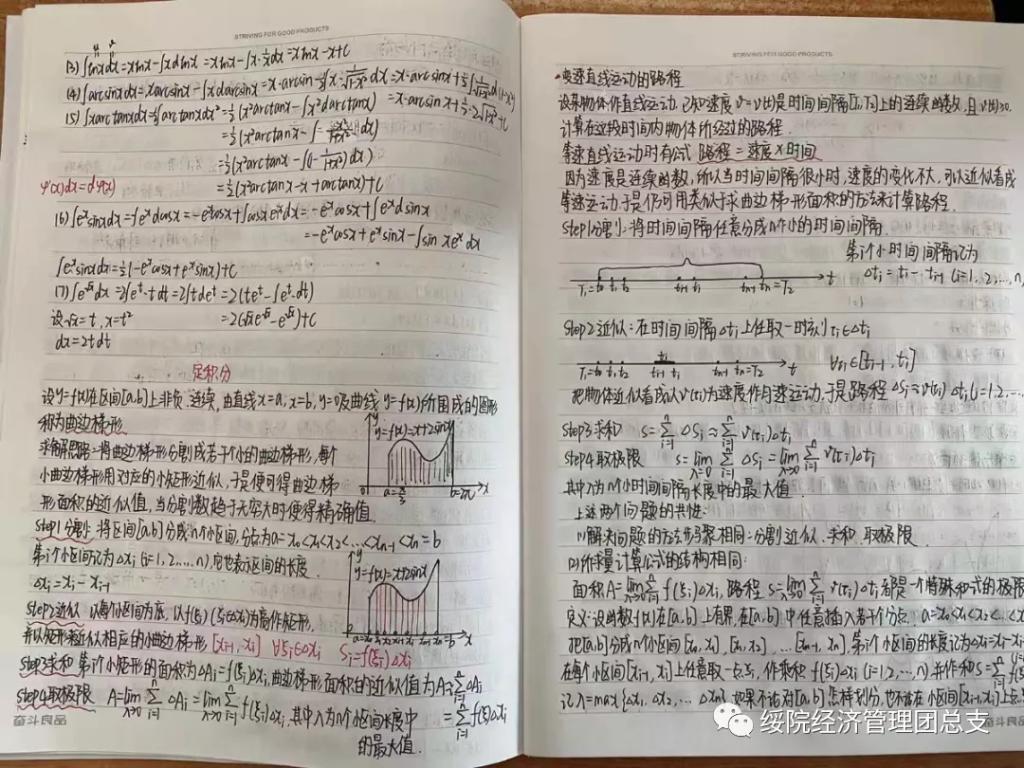 STRIVING FOR GOOD PRODUCTS
(3) ∫lnxdx=xlnx-∫xdlnx=xlnx-∫x·1/x dx=xlnx-x+C
(4) ∫arcsinxdx=xarcsinx-∫xdarcsinx=x·arcsinx-∫x·1/√(1-x²) dx=x·arcsinx+½∫1/√(1-x²) d(1-x²)
(5) ∫xarctanxdx=½∫arctanxdx²=½(x²arctanx-∫x²darctanx)
=x·arcsinx+½·2√(1-x²)+C
=½(x²arctanx-∫ dx)
=½(x²arctanx-∫(1-1/(1+x²))dx)
φ'(x)dx=dφ(x)
=½(x²arctanx-x+arctanx)+C
(6) ∫eˣsinxdx=-∫eˣdcosx=-eˣcosx+∫cosxeˣdx=-eˣcosx+∫eˣdsinx
=-eˣcosx+eˣsinx-∫sinxeˣdx
∫eˣsinxdx=½(-eˣcosx+eˣsinx)+C
(7) ∫e^√x dx=2∫eᵗ·tdt=2∫tdeᵗ=2(teᵗ-∫eᵗdt)
设√x=t, x=t²
=2(√xe^√x-e^√x)+C
dx=2tdt
定积分
设y=f(x)在区间[a,b]上非负、连续,由直线x=a,x=b,y=0及曲线y=f(x)所围成的图形
称为曲边梯形
y=f(x)=x+2sinx
求解思路:将曲边梯形分割成若干个小的曲边梯形,每个
小曲边梯形用对应的小矩形近似,于是便可得曲边梯
形面积的近似值,当分割数趋于无穷大时便得精确值
Step1分割:将区间[a,b]分成n个小区间,分点为a=x₀<x₁<x₂<...<xₙ₋₁<xₙ=b
第i个小区间记为Δxᵢ(i=1,2,...,n),它也表示区间的长度
y=f(x)=x+2sinx
Δxᵢ=xᵢ-xᵢ₋₁
Step2近似:以每个小区间为底,以f(ξᵢ)(ξᵢ∈Δxᵢ)为高作矩形,
并以矩形近似相应的小曲边梯形 [xᵢ₋₁,xᵢ] ∀ξᵢ∈Δxᵢ Sᵢ=f(ξᵢ)Δxᵢ
Step3求和 第i个小矩形的面积为ΔAᵢ=f(ξᵢ)Δxᵢ,曲边梯形面积的近似值为A≈∑ΔAᵢ
Step4取极限 A=lim ∑ΔAᵢ=lim ∑f(ξᵢ)Δxᵢ,其中λ为n个小区间长度中
=∑f(ξᵢ)Δxᵢ
的最大值.
奋斗良品
STRIVING FOR GOOD PRODUCTS
·变速直线运动的路程
设某物体作直线运动,已知速度v=v(t)是时间间隔[T₁,T₂]上的连续函数,且v(t)≥0.
计算在这段时间内物体所经过的路程.
等速直线运动时有公式 路程=速度×时间
因为速度是连续函数,所以当时间间隔很小时,速度的变化不大,可以近似看成
等速运动,于是仍可用类似于求曲边梯形面积的方法来计算路程.
Step1分割:将时间间隔任意分成n个小的时间间隔.
第i个小时间间隔记为
T₁=t₀ t₁ t₂ tᵢ₋₁ tᵢ tₙ₋₁ tₙ=T₂ t
Δtᵢ=tᵢ-tᵢ₋₁ (i=1,2,...,n
Step2近似:在时间间隔Δtᵢ上任取一时刻τᵢ∈Δtᵢ
T₁=t₀ t₁ t₂ tᵢ₋₁ tᵢ tₙ₋₁ tₙ=T₂ t ∀τᵢ∈[tᵢ₋₁,tᵢ]
把物体近似看成以v(τᵢ)为速度作匀速运动,于是路程ΔSᵢ≈v(τᵢ)Δtᵢ(i=1,2,...
Step3求和 S=∑ΔSᵢ≈∑v(τᵢ)Δtᵢ
Step4取极限 S=lim ∑ΔSᵢ=lim ∑v(τᵢ)Δtᵢ
其中λ为n个小时间间隔长度中的最大值.
上述两个问题的共性:
(1)解决问题的方法步骤相同:分割、近似、求和、取极限
(2)所求量计算公式的结构相同:
面积A=lim ∑f(ξᵢ)Δxᵢ,路程S=lim ∑v(τᵢ)Δtᵢ都是一个特殊和式的极限
定义:设函数f(x)在[a,b]上有界,在[a,b]中任意插入若干个分点:a=x₀<x₁<x₂<...<x
把[a,b]分成n个小区间[x₀,x₁],[x₁,x₂],...[xₙ₋₁,xₙ],第i个小区间的长度记为Δxᵢ=xᵢ-xᵢ₋
在每个小区间[xᵢ₋₁,xᵢ]上任意取一点ξᵢ,作乘积f(ξᵢ)Δxᵢ(i=1,2,...n)并作和S=∑f(ξ
记λ=max{Δx₁,Δx₂,...Δxₙ},如果不论对[a,b]怎样划分,也不论在小区间[xᵢ₋₁,xᵢ]上
绥院经济管理团总支
奋斗良品